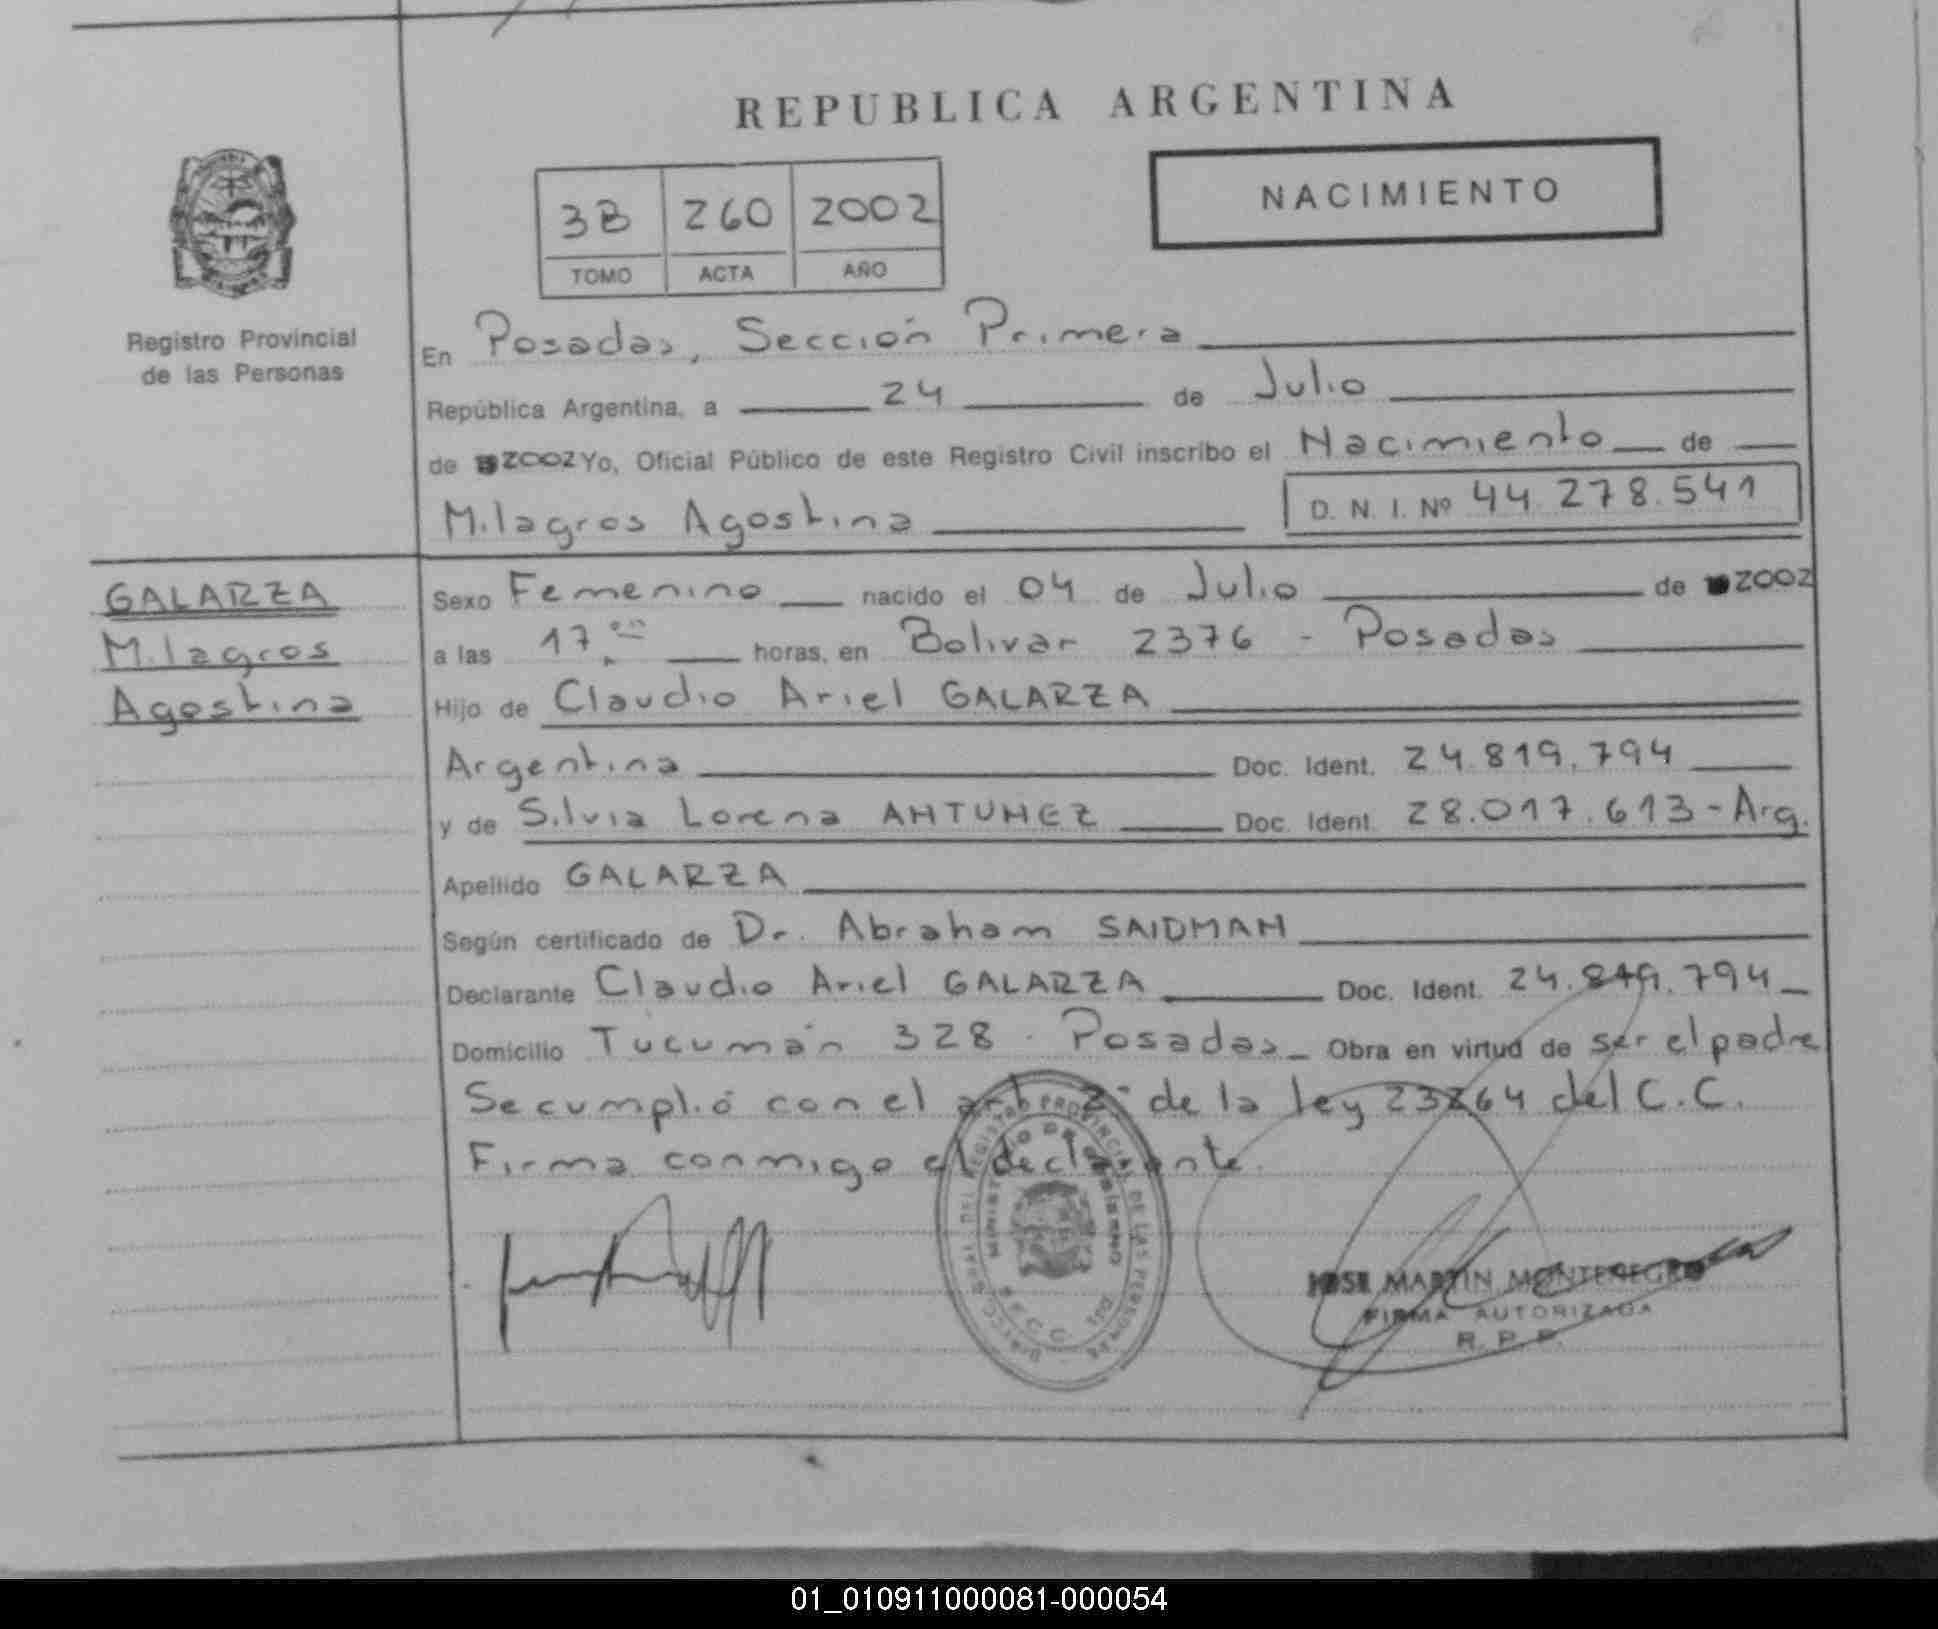 REPUBLICA ARGENTINA
NACIMIENTO
3B 260 2002
TOMO ACTA AÑO
Registro Provincial
de las Personas
En Posadas, Sección Primera
República Argentina, a 24 de Julio
de 2002 Yo, Oficial Público de este Registro Civil inscribo el Nacimiento de
Milagros Agostina D. N. I. Nº 44.278.541
GALARZA
Milagros
Agostina
Sexo Femenino nacido el 04 de Julio de 2002
a las 17 horas, en Bolivar 2376 - Posadas
Hijo de Claudio Ariel GALARZA
Argentina Doc. Ident. 24.819.794
y de Silvia Lorena ANTUNEZ Doc. Ident. 28.017.613 - Arg.
Apellido GALARZA
Según certificado de Dr. Abraham SAIDMAN
Declarante Claudio Ariel GALARZA Doc. Ident. 24.819.794
Domicilio Tucumán 328 - Posadas Obra en virtud de ser el padre
Se cumplió con el art 2º de la ley 23264 del C.C.
Firma conmigo el declarante.
JOSE MARTIN MONTENEGRO
FIRMA AUTORIZADA
R. P. P.
01_010911000081-000054